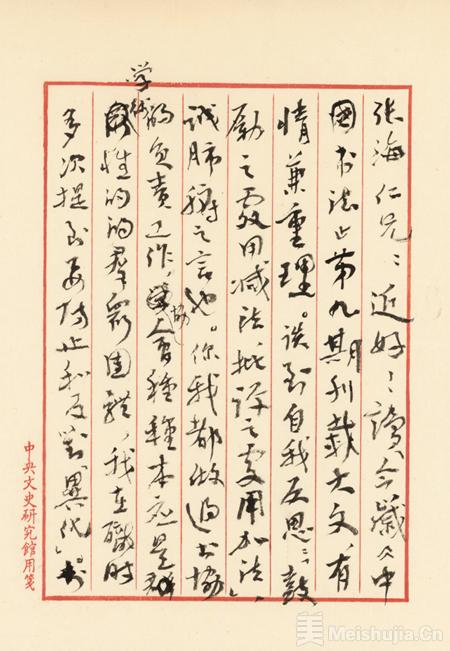 张海仁兄：近好！读今岁《中
国书法》第九期刊载大文，有
情兼重理。谈到自我反思：“鼓
励之处用减法，批评之处用加法”，
诚肺腑之言也。你我都做过书协
的负责工作，协会种种本应是群
学术性的的群众团体，我在职时
多次提到要防止和反对“异化”。书
中央文史研究馆用笺
美 Meishujia.Cn